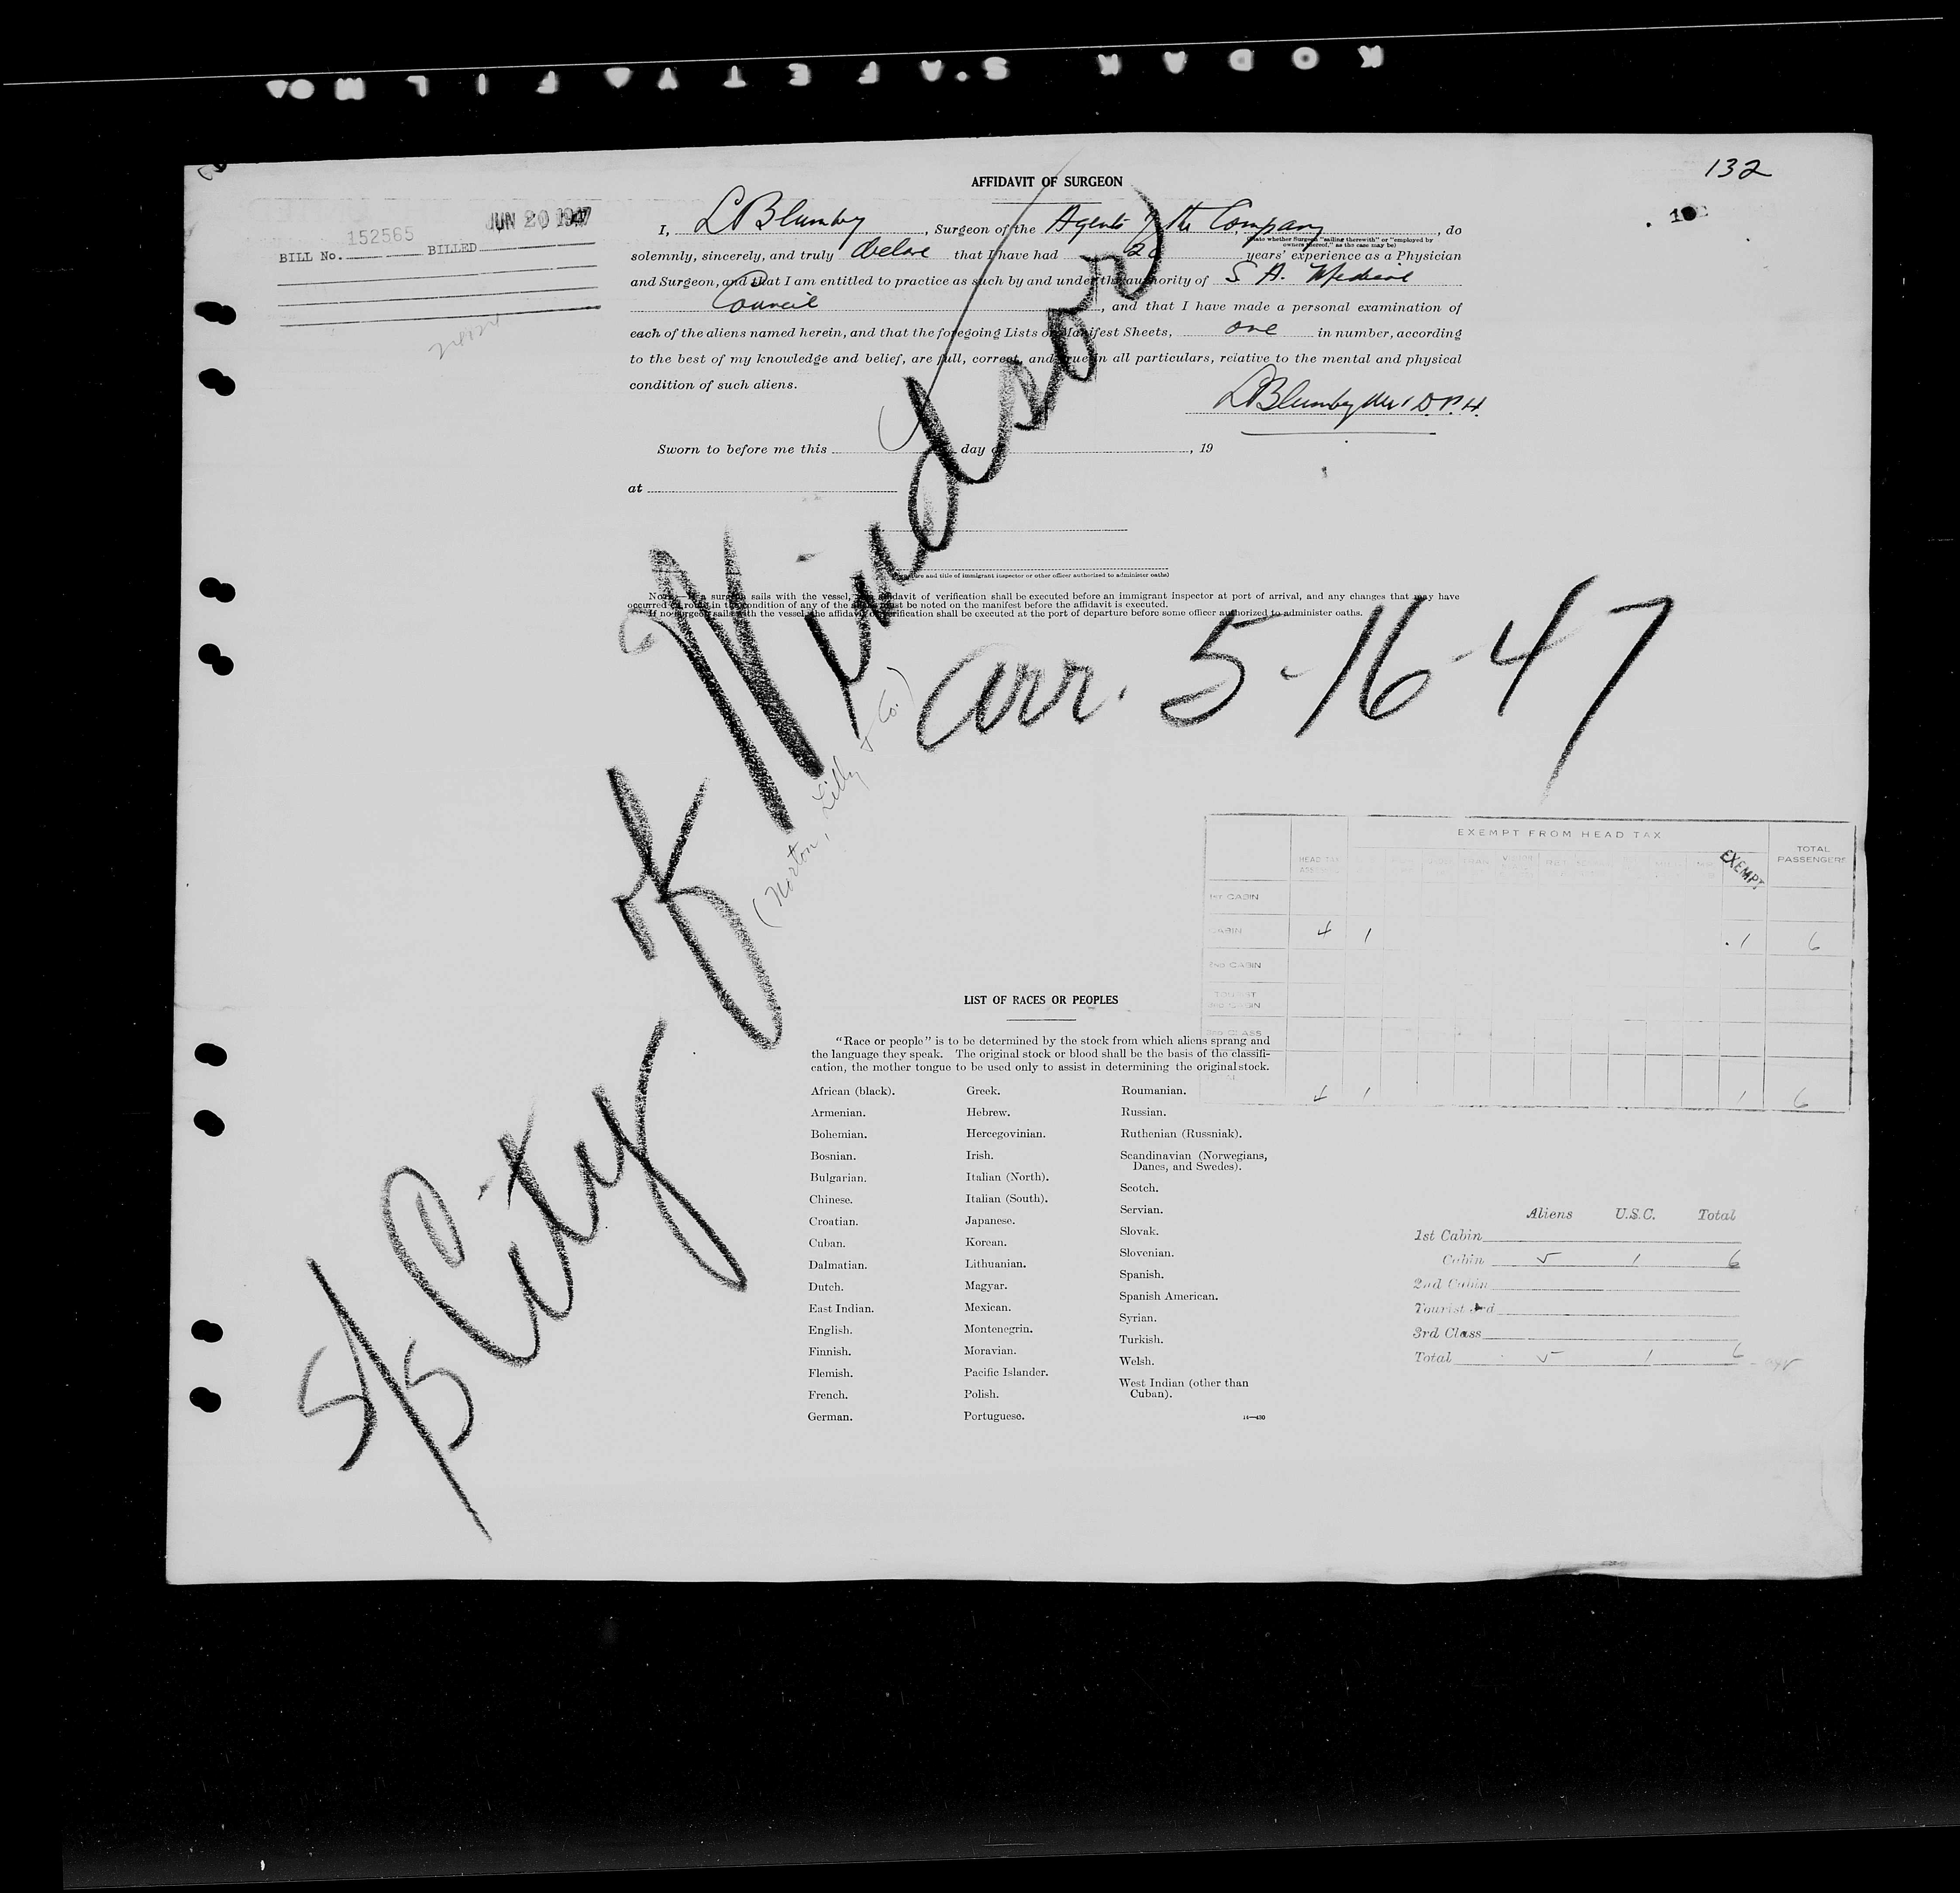 KODAK SAFETY FILM
132
AFFIDAVIT OF SURGEON
JUN 20 1947
152565
BILL No. BILLED
I, L Blumby, Surgeon of the Agents of the Company, do
(State whether Surgeon "sailing therewith" or "employed by owners thereof," as the case may be)
solemnly, sincerely, and truly declare that I have had 20 years' experience as a Physician
and Surgeon, and that I am entitled to practice as such by and under the authority of S A. Medical
Council, and that I have made a personal examination of
each of the aliens named herein, and that the foregoing Lists or Manifest Sheets, one in number, according
to the best of my knowledge and belief, are full, correct, and true in all particulars, relative to the mental and physical
condition of such aliens.
L Blumby D.P.H.
Sworn to before me this day of , 19
at
(Signature and title of immigrant inspector or other officer authorized to administer oaths)
Note.—If a surgeon sails with the vessel, the affidavit of verification shall be executed before an immigrant inspector at port of arrival, and any changes that may have
occurred en route in the condition of any of the aliens must be noted on the manifest before the affidavit is executed.
If no surgeon sails with the vessel, the affidavit of verification shall be executed at the port of departure before some officer authorized to administer oaths.
S/S City of Windsor
(Norton, Lilly & Co.)
arr. 5-16-47
EXEMPT FROM HEAD TAX
HEAD TAX
EXEMPT
TOTAL PASSENGERS
1st CABIN
CABIN 4 1 1 6
2ND CABIN
3RD CLASS
4 1 1 6
LIST OF RACES OR PEOPLES
"Race or people" is to be determined by the stock from which aliens sprang and
the language they speak. The original stock or blood shall be the basis of the classifi-
cation, the mother tongue to be used only to assist in determining the original stock.
African (black).
Armenian.
Bohemian.
Bosnian.
Bulgarian.
Chinese.
Croatian.
Cuban.
Dalmatian.
Dutch.
East Indian.
English.
Finnish.
Flemish.
French.
German.
Greek.
Hebrew.
Hercegovinian.
Irish.
Italian (North).
Italian (South).
Japanese.
Korean.
Lithuanian.
Magyar.
Mexican.
Montenegrin.
Moravian.
Pacific Islander.
Polish.
Portuguese.
Roumanian.
Russian.
Ruthenian (Russniak).
Scandinavian (Norwegians,
Danes, and Swedes).
Scotch.
Servian.
Slovak.
Slovenian.
Spanish.
Spanish American.
Syrian.
Turkish.
Welsh.
West Indian (other than
Cuban).
14—430
Aliens U.S.C. Total
1st Cabin
Cabin 5 1 6
2nd Cabin
Tourist 3rd
3rd Class
Total 5 1 6